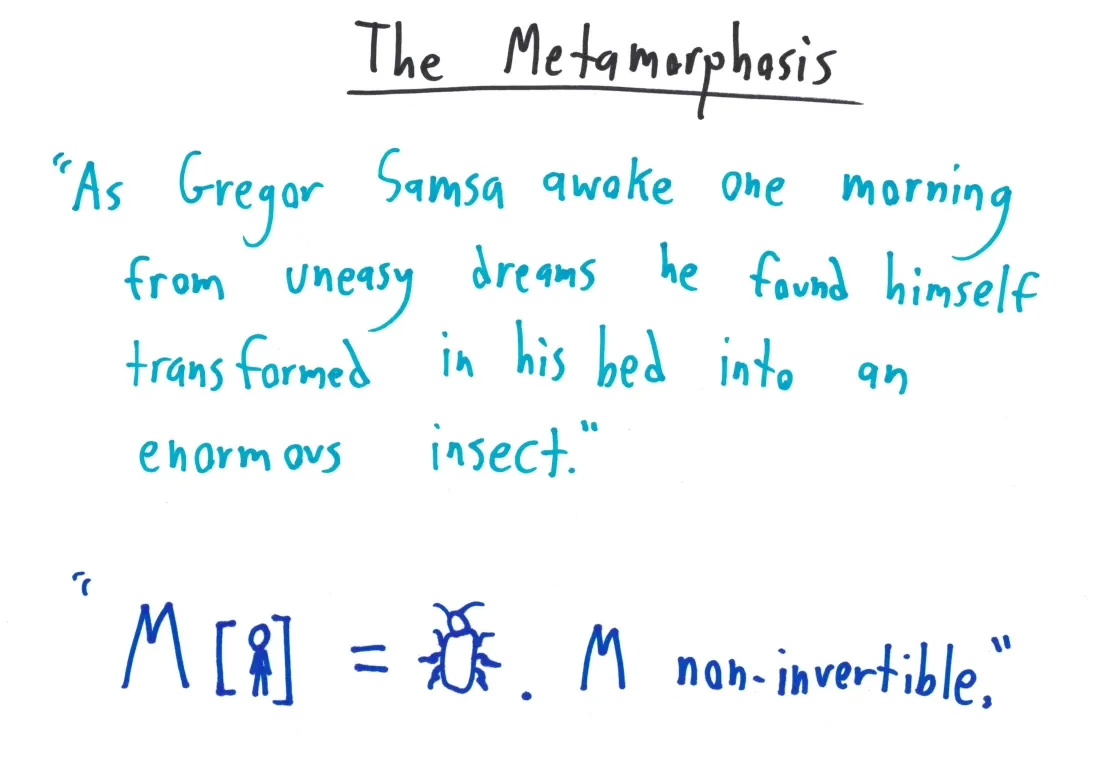 The Metamorphosis
"As Gregor Samsa awoke one morning
from uneasy dreams he found himself
transformed in his bed into an
enormous insect."
"M [ ] = . M non-invertible."